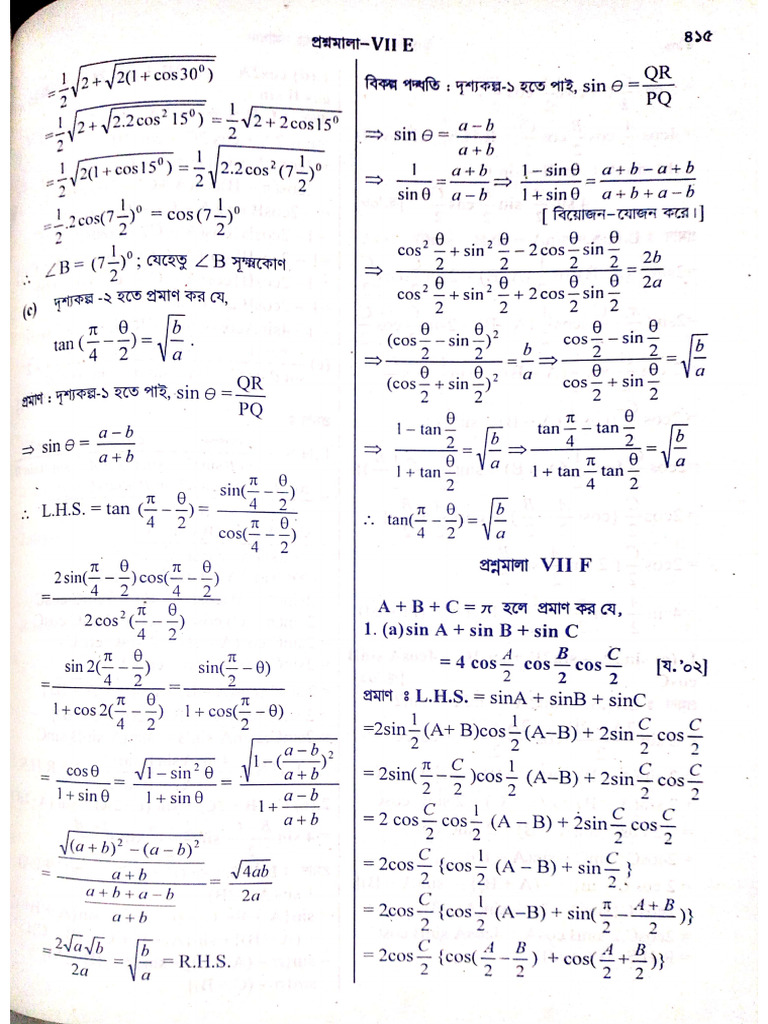 প্রশ্নমালা-VII E
৪১৫
= 1/2 √(2 + √(2(1 + cos30⁰)))
= 1/2 √(2 + √(2.2cos² 15⁰)) = 1/2 √(2 + 2cos15⁰)
= 1/2 √(2(1 + cos15⁰)) = 1/2 √(2.2cos²(7 1/2)⁰)
= 1/2 .2cos(7 1/2)⁰ = cos (7 1/2)⁰
∴ ∠B = (7 1/2)⁰ ; যেহেতু ∠B সূক্ষ্মকোণ
(c) দৃশ্যকল্প -২ হতে প্রমাণ কর যে,
tan (π/4 − θ/2) = √(b/a) .
প্রমাণ : দৃশ্যকল্প-১ হতে পাই, sin θ = QR/PQ
⇒ sin θ = (a − b)/(a + b)
∴ L.H.S. = tan (π/4 − θ/2) = sin(π/4 − θ/2)/cos(π/4 − θ/2)
= 2sin(π/4 − θ/2)cos(π/4 − θ/2)/2cos²(π/4 − θ/2)
= sin 2(π/4 − θ/2)/(1 + cos 2(π/4 − θ/2)) = sin(π/2 − θ)/(1 + cos(π/2 − θ))
= cosθ/(1 + sin θ) = √(1 − sin² θ)/(1 + sin θ) = √(1 − ((a − b)/(a + b))²)/(1 + (a − b)/(a + b))
= (√((a + b)² − (a − b)²)/(a + b))/((a + b + a − b)/(a + b)) = √(4ab)/2a
= 2√a√b/2a = √(b/a) = R.H.S.
বিকল্প পদ্ধতি : দৃশ্যকল্প-১ হতে পাই, sin θ = QR/PQ
⇒ sin θ = (a − b)/(a + b)
⇒ 1/sin θ = (a + b)/(a − b) ⇒ (1 − sin θ)/(1 + sin θ) = (a + b − a + b)/(a + b + a − b)
[ বিয়োজন-যোজন করে।]
⇒ (cos² θ/2 + sin² θ/2 − 2cos θ/2 sin θ/2)/(cos² θ/2 + sin² θ/2 + 2cos θ/2 sin θ/2) = 2b/2a
⇒ (cos θ/2 − sin θ/2)²/(cos θ/2 + sin θ/2)² = b/a ⇒ (cos θ/2 − sin θ/2)/(cos θ/2 + sin θ/2) = √(b/a)
⇒ (1 − tan θ/2)/(1 + tan θ/2) = √(b/a) ⇒ (tan π/4 − tan θ/2)/(1 + tan π/4 tan θ/2) = √(b/a)
∴ tan(π/4 − θ/2) = √(b/a)
প্রশ্নমালা VII F
A + B + C = π হলে প্রমাণ কর যে,
1. (a) sin A + sin B + sin C
= 4 cos A/2 cos B/2 cos C/2 [য.'০২]
প্রমাণ ঃ L.H.S. = sinA + sinB + sinC
=2sin 1/2 (A+ B)cos 1/2 (A–B) + 2sin C/2 cos C/2
= 2sin(π/2 − C/2)cos 1/2 (A–B) + 2sin C/2 cos C/2
= 2 cos C/2 cos 1/2 (A – B) + 2sin C/2 cos C/2
= 2cos C/2 {cos 1/2 (A – B) + sin C/2 }
= 2cos C/2 {cos 1/2 (A–B) + sin( π/2 − (A + B)/2 )}
= 2cos C/2 {cos( A/2 − B/2 ) + cos( A/2 + B/2 )}